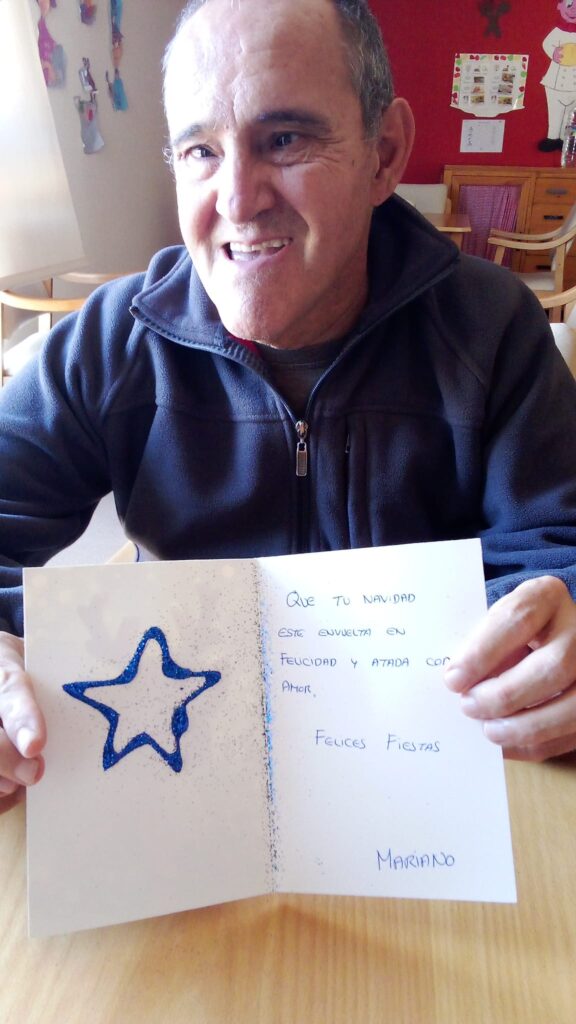 QUE TU NAVIDAD
ESTE ENVUELTA EN
FELICIDAD Y ATADA CON
AMOR.
FELICES FIESTAS
MARIANO